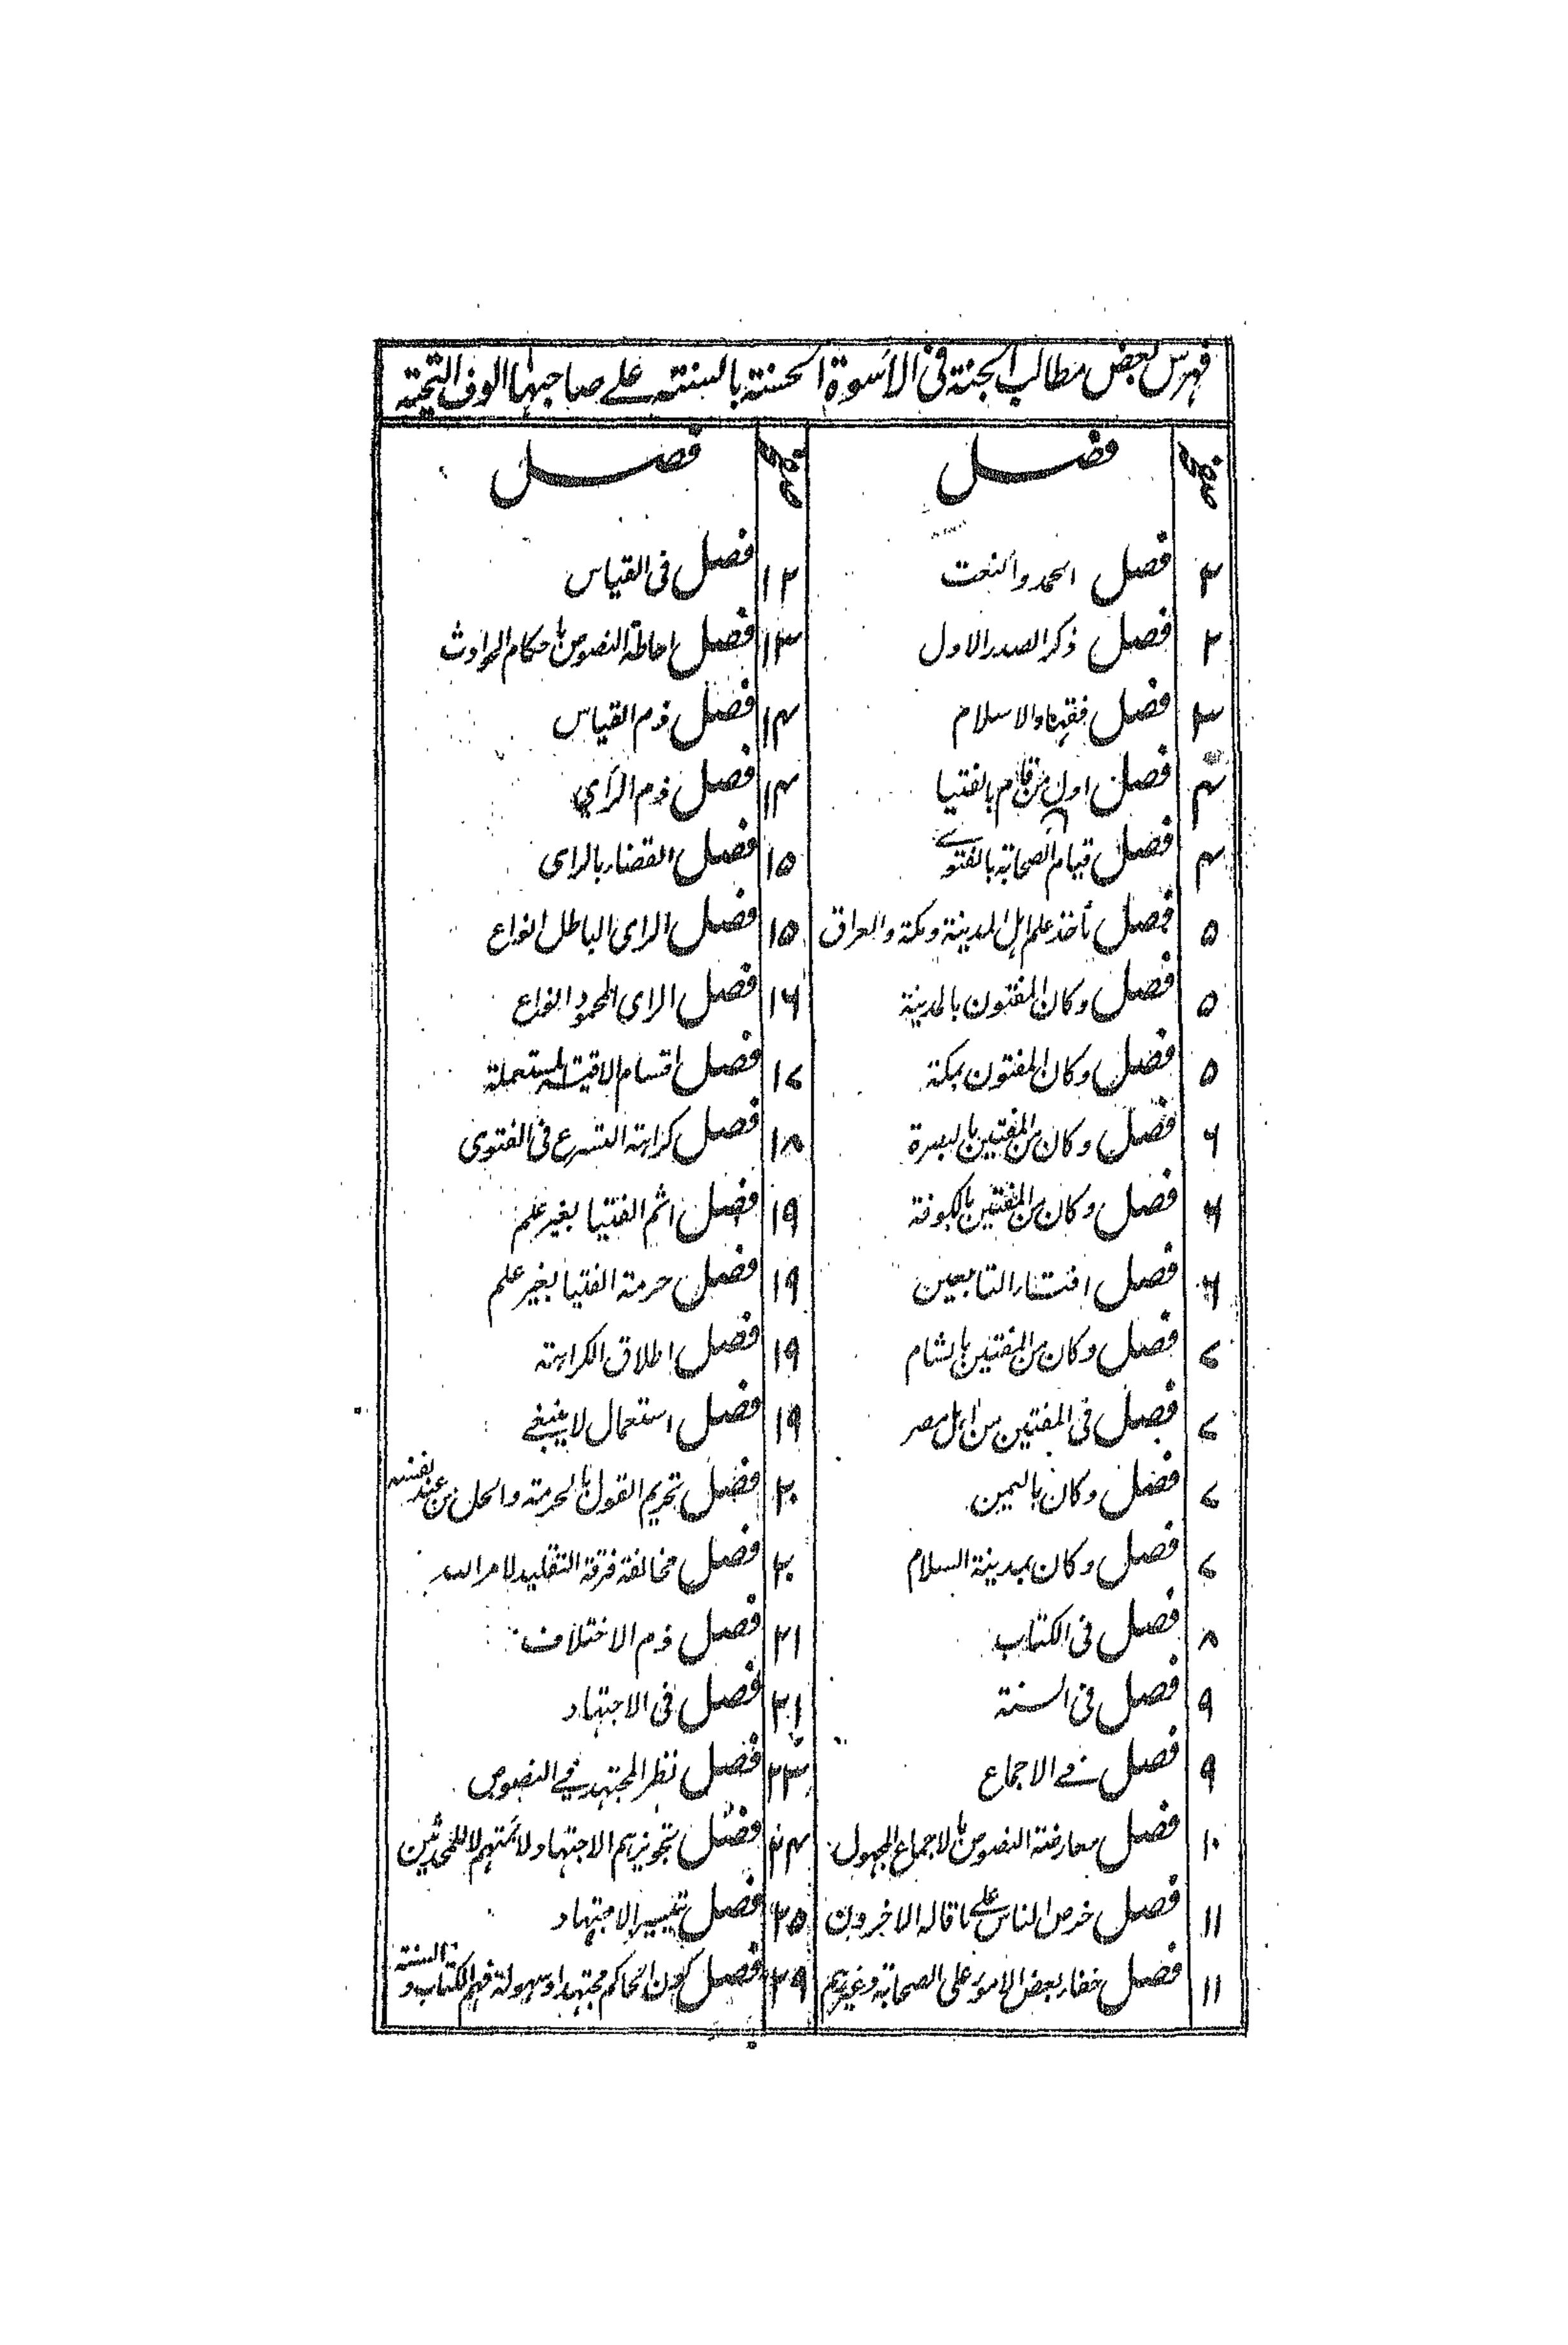 فهرس بعض مطالب الجنة فی الأسوة الحسنة بالسنة علے صاحبها الوف التحیة
صفحہ فصل
۲ فصل الحمد والنعت
۲ فصل ذکر الصدر الاول
۳ فصل فقهاء الاسلام
۴ فصل اول من قام بالفتیا
۴ فصل قیام الصحابة بالفتوے
۵ فصل تأخذ علم اهل المدینة ومکة والعراق
۵ فصل وکان المفتون بالمدینة
۵ فصل وکان المفتون بمکة
۶ فصل وکان من المفتین بالبصرة
۶ فصل وکان من المفتین بالکوفة
۶ فصل افتاء التابعین
۷ فصل وکان من المفتین بالشام
۷ فصل فی المفتین من اهل مصر
۷ فصل وکان بالیمین
۷ فصل وکان بمدینة السلام
۸ فصل فی الکتاب
۹ فصل فی السنة
۹ فصل فے الاجماع
۱۰ فصل معارضة النصوص بالاجماع المجهول
۱۱ فصل خرص الناس علی ما قاله الاخرون
۱۱ فصل خفاء بعض الامور علی الصحابة وغیرهم
صفحہ فصل
۱۲ فصل فی القیاس
۱۳ فصل احاطة النصوص باحکام الحوادث
۱۴ فصل ذم القیاس
۱۴ فصل ذم الرأي
۱۵ فصل القضاء بالرای
۱۵ فصل الرای الباطل انواع
۱۶ فصل الرای المحمود انواع
۱۷ فصل اقسام الاقیسة المستعملة
۱۸ فصل کراهة التسرع فی الفتوی
۱۹ فصل اثم الفتیا بغیر علم
۱۹ فصل حرمة الفتیا بغیر علم
۱۹ فصل اطلاق الکراهة
۱۹ فصل استعمال لا ینبغے
۲۰ فصل تحریم القول بالحرمة والحل من عند نفسه
۲۰ فصل مخالفة فرقة التقلید لامر الله
۲۱ فصل ذم الاختلاف
۲۱ فصل فی الاجتهاد
۲۳ فصل نظر المجتهد فے النصوص
۲۴ فصل تجویزهم الاجتهاد لائمتهم لا للمحدثین
۲۵ فصل تیسیر الاجتهاد
۲۹ فصل کون الحاکم مجتهدا وسهولة فهم الکتاب و السنة